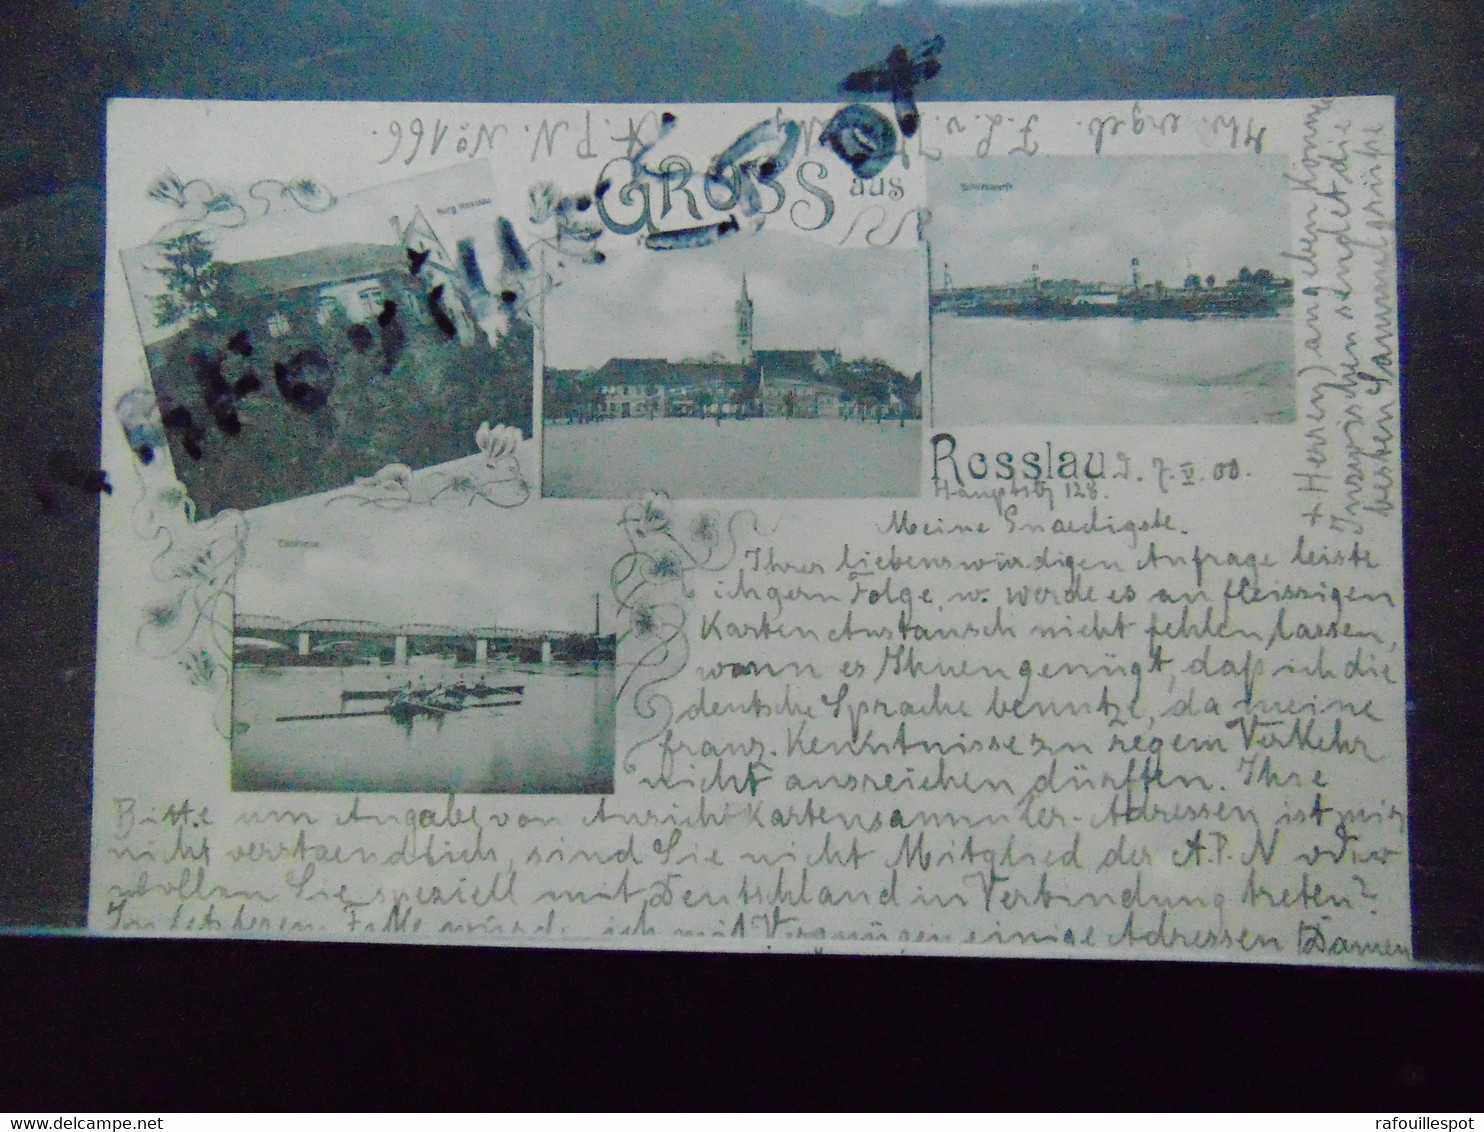 GRUSS aus
Burg Rosslau
Schiffswerft
Rosslau, d. 7. V. 00.
Hauptstr 128.
Meine Gnaedigste.
Ihrer liebenswürdigen Anfrage leiste
ich gern Folge, u. werde es an fleissigen
Karten Austausch nicht fehlen lassen,
wenn es Ihnen genügt, daß ich die
deutsche Sprache benutze, da meine
franz. Kenntnisse zu regem Verkehr
nicht ausreichen dürften. Ihre
Bitte um Angabe von Ansicht Kartensammler-Adressen ist mir
nicht verstaendlich, sind Sie nicht Mitglied des A.P.N oder
wollen Sie speziell mit Deutschland in Verbindung treten?
Im letzteren Falle würde ich mit Vergnügen einige Adressen (Damen
+ Herren) angeben können
Inzwischen sendet die
besten Sammelgrüsse
Ihr ergeb. F. L. v.
A. P. N. No 166.
rafouillespot
rafouillespot